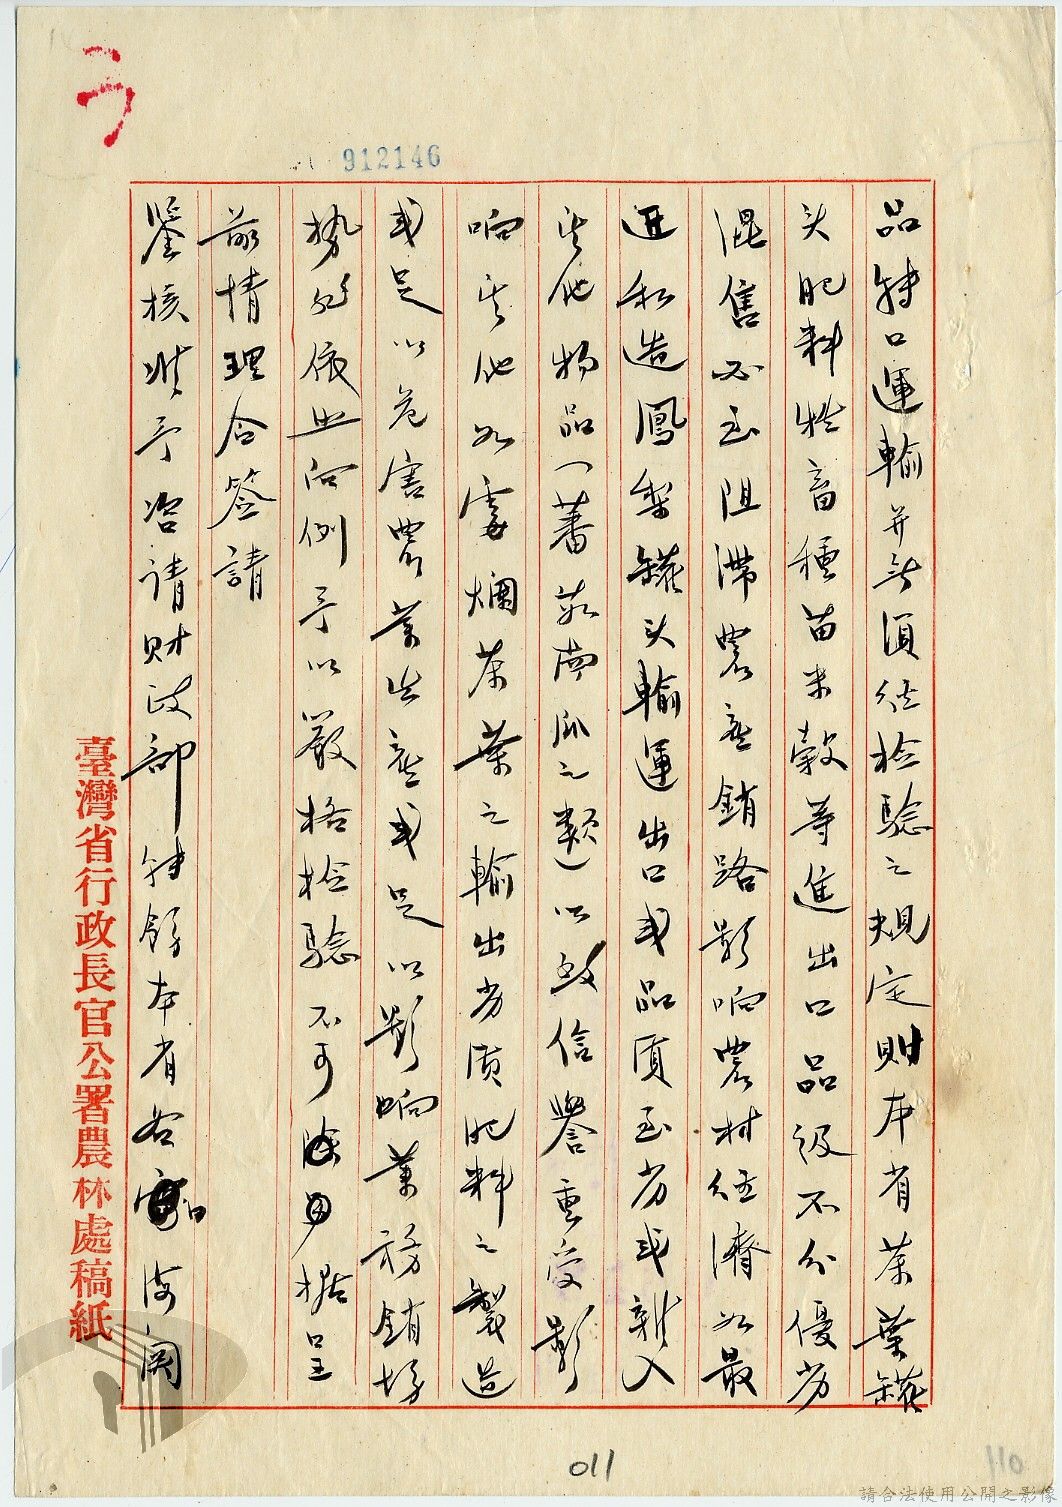 912146
品轉口運輸并無須經檢驗之規定則本省茶葉罐
头肥料牲畜種苗米穀等進出口品級不分優劣
混售必至阻滯農產銷路影响農村经濟如最
近私造鳳梨罐头輸運出口或品質至劣或雜入
其他物品(蕃茄南瓜之類)以致信譽重受影
响其他如霉爛茶葉之輸出劣質肥料之製造
或足以危害農業生產或足以影响業務銷場
勢非依照向例予以嚴格檢驗不可 據呈
前情理合簽請
鑒核准予咨請財政部轉飭本省各 海関
臺灣省行政長官公署農林處稿紙
011
110
請合法使用公開之影像